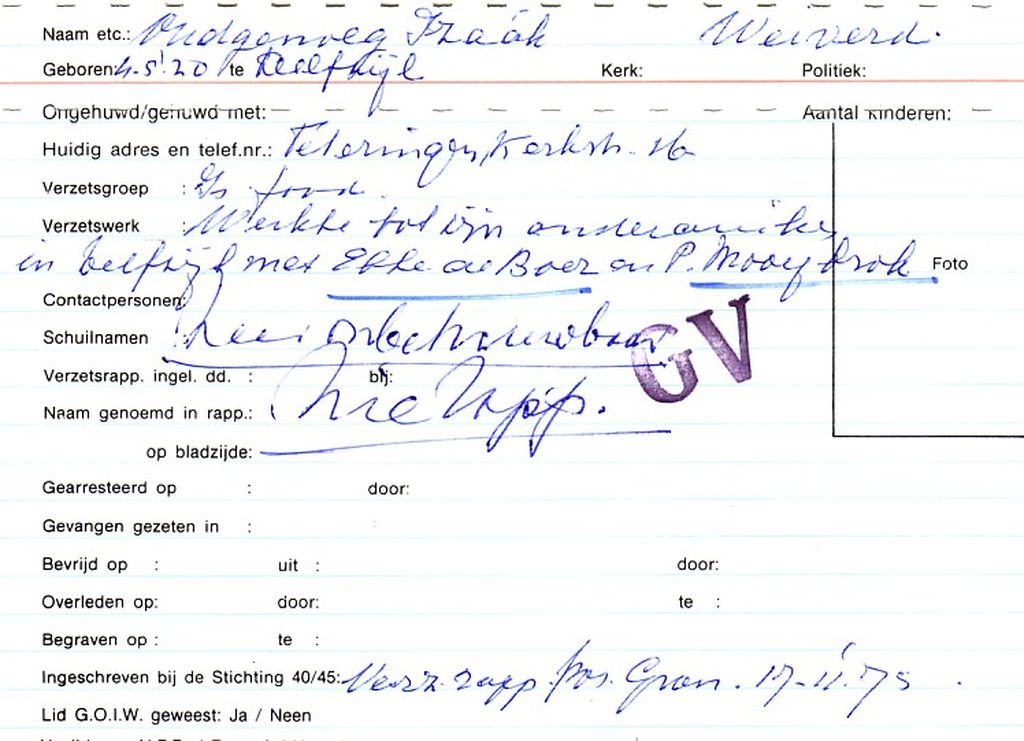 Naam etc.: Oudgenoeg Izaäk Weiverd.
Geboren: 4.5.20 te Delfzijl Kerk: Politiek:
Ongehuwd/gehuwd met: Aantal kinderen:
Huidig adres en telef.nr.: Teteringen, Kerkstr. 16
Verzetsgroep :
Verzetswerk : Werkte tot zijn onderduiken
in Delfzijl met Ekke de Boer en P. Mooybrok Foto
Contactpersonen:
Schuilnamen :
GV
Verzetsrapp. ingel. dd. : bij:
Naam genoemd in rapp.: Zie rapp.
op bladzijde:
Gearresteerd op : door:
Gevangen gezeten in :
Bevrijd op : uit : door:
Overleden op: door: te :
Begraven op : te :
Ingeschreven bij de Stichting 40/45: Verz. rapp. Gron. 17-11-75.
Lid G.O.I.W. geweest: Ja / Neen